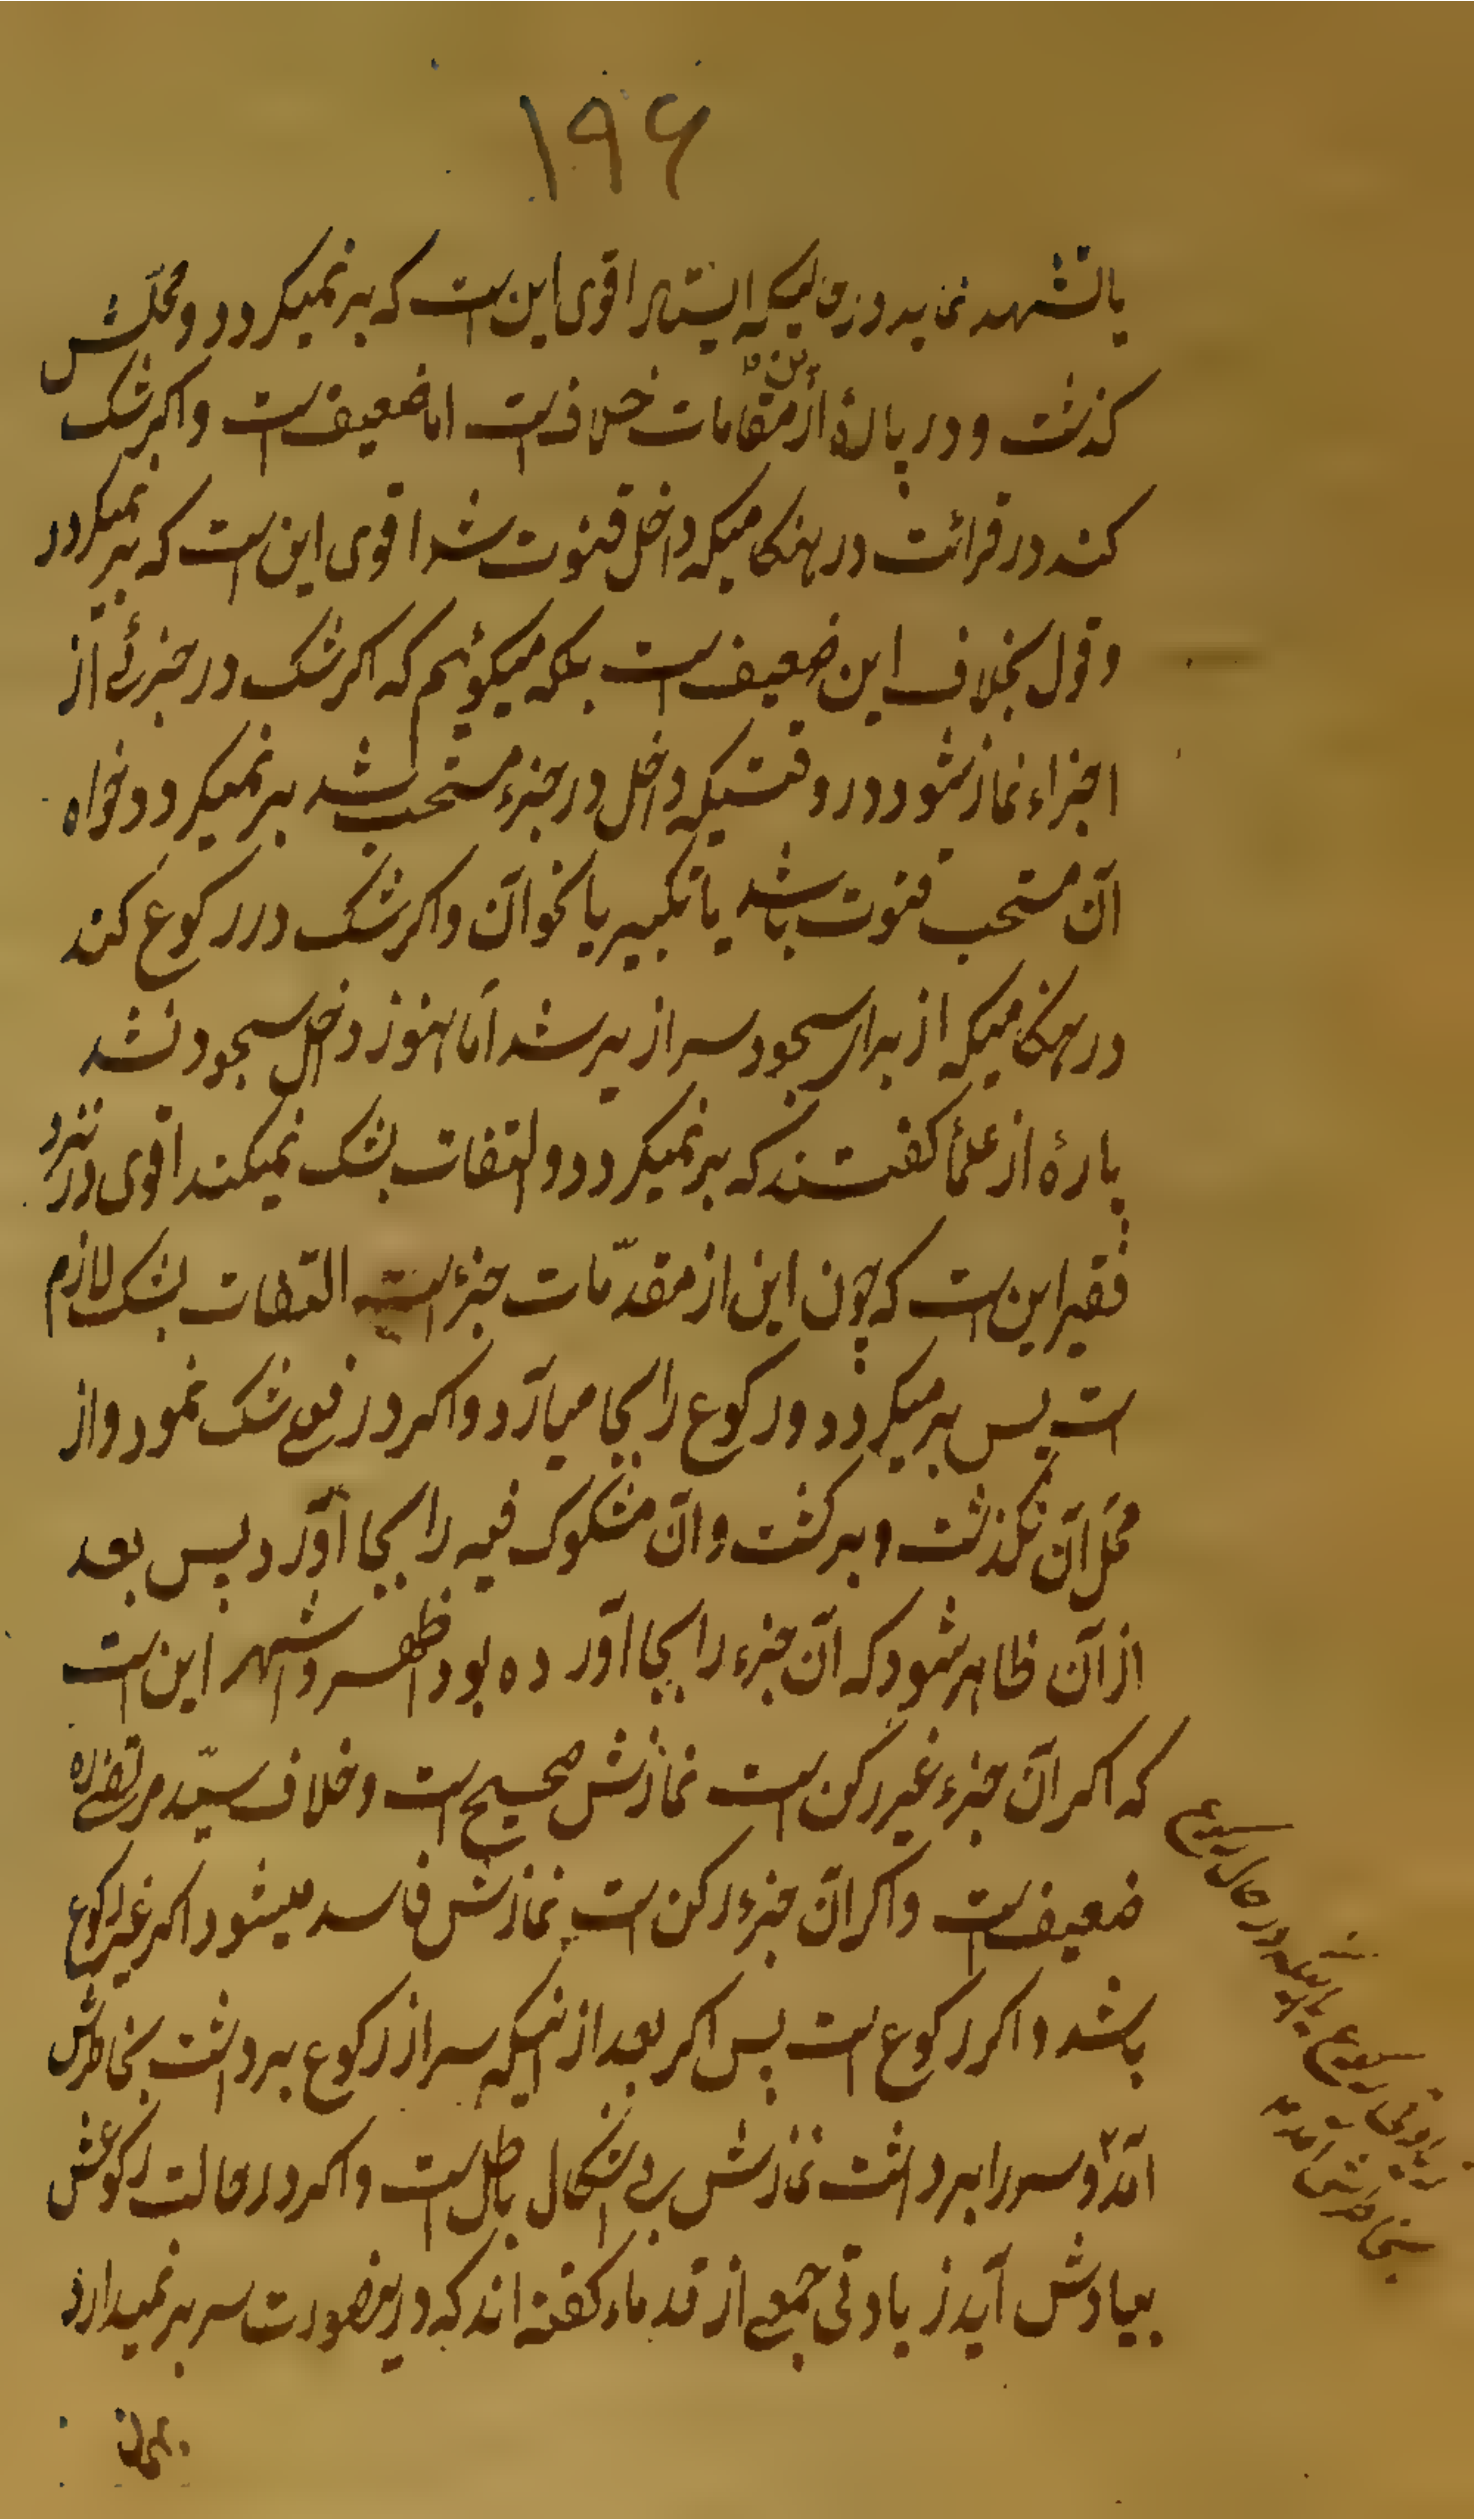 ۱۹۶
یا تشهد نماید در زمانیکه ایستاد اقوی این است که برنمیکردد و محلش
کذشت و در پارهٔ از مقامات خلافست اما ضعیف است و اکر شک
کند در قرائت در هنکامیکه داخل قنوت شد اقوی این است که برنمیکردد
و قول بخلاف این ضعیف است بلکه میکوئیم که اکر شک در جزئی از
اجزاء نماز نمود در وقتیکه داخل در جزء مستحب شد برنمیکردد خواه
آن مستحب قنوت باشد یا تکبیر یا نحو آن و اکر شک در رکوع کند
در هنکامیکه از برای سجود سرازیر شد اما هنوز داخل سجود نشد
پارهٔ از علمأ کفتند که برنمیکردد و التفات بشک نمیکند اقوی در نزد
فقیر این است که چون این از مقدّمات جزء است التفات بشک لازم
است پس برمیکردد و رکوع را بجا میآرد و اکر در رفع شک نمود و از
محل آن نکذشت و برکشت و آن مشکوک فیه را بجا آورد پس بعد
از آن ظاهر شود که آن جزء را بجا آورده بود اظهر و اشهر این است
که اکر آن جزء غیر رکن است نمازش صحیح است و خلاف سیّد مرتضی ره
ضعیف است و اکر آن جزء رکن است نمازش فاسد میشود اکر غیر رکوع
باشد و اکر رکوع است پس اکر بعد از اینکه سر از رکوع برداشت بخاطرش
آمد و سر را برداشت نمازش بی اشکال باطل است و اکر در حالت رکوعش
بیادش آید زیادتی جمعی از قدماء کفته اند که در اینصورت سر برنمیدارد